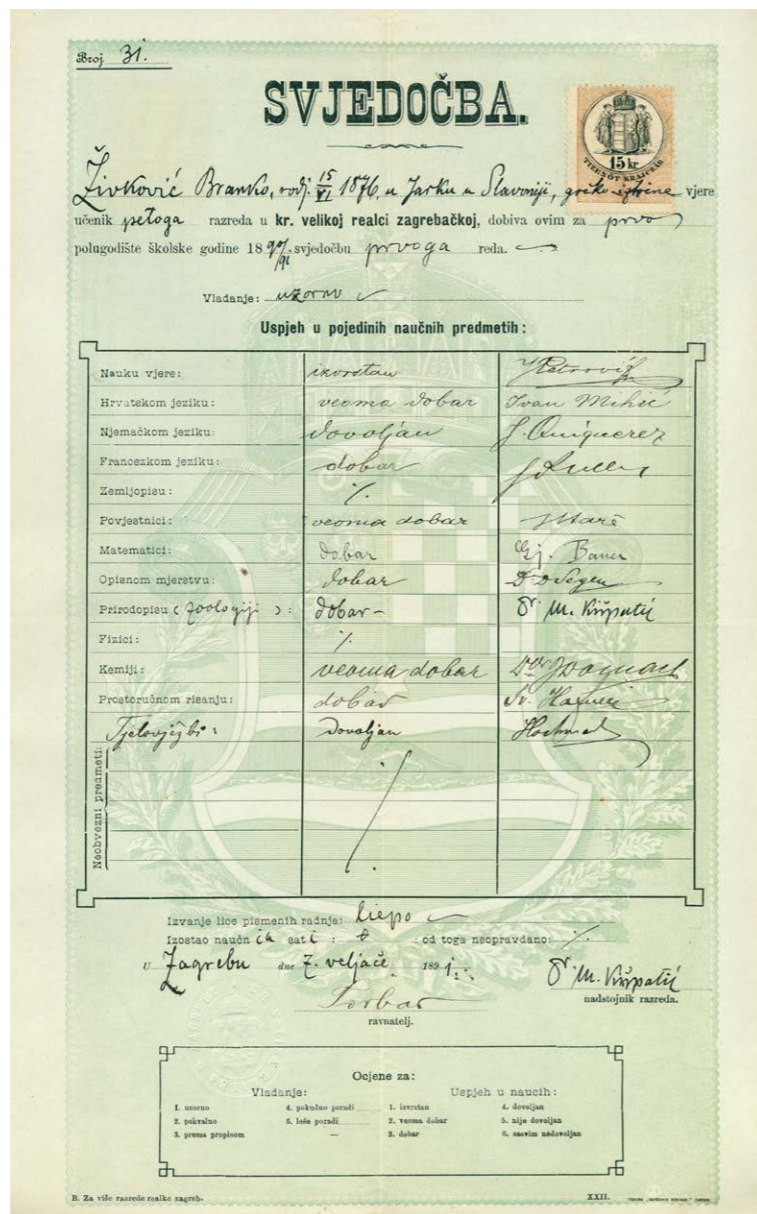 Broj 31.
SVJEDOČBA.
15 kr
TIZENÖT KRAJCZÁR
Živković Branko, rodj. 15/VI 1876, u Jarku u Slavoniji, grčko-istočne vjere
učenik petoga razreda u kr. velikoj realci zagrebačkoj, dobiva ovim za prvo
polugodište školske godine 1890/91. svjedočbu prvoga reda.
Vladanje: uzorno
Uspjeh u pojedinih naučnih predmetih:
Nauku vjere: izvrstan Petrović
Hrvatskom jeziku: veoma dobar Ivan Mihić
Njemačkom jeziku: dovoljan
Francezkom jeziku: dobar
Zemljopisu: ⁒
Povjestnici: veoma dobar
Matematici: dobar Gj.
Opisnom mjerstvu: dobar Dr. D Segen
Prirodopisu (zoologiji): dobar – Dr. M. Kišpatić
Fizici: ⁒
Kemiji: veoma dobar
Prostoručnom risanju: dobar
Tjelovježbi: dovoljan Hochman
Neobvezni predmeti:
Izvanje lice pismenih radnja: liepo
Izostao naučnih sati: od toga neopravdano: ⁒
U Zagrebu dne 7. veljače 1891.
Dr. M. Kišpatić
nadstojnik razreda.
Torbar
ravnatelj.
Ocjene za:
Vladanje: Uspjeh u naucih:
1. uzorno 4. pokudno poradi 1. izvrstan 4. dovoljan
2. pohvalno 5. loše poradi 2. veoma dobar 5. nije dovoljan
3. prema propisom — 3. dobar 6. sasvim nedovoljan
B. Za više razrede realke zagreb. XXII.